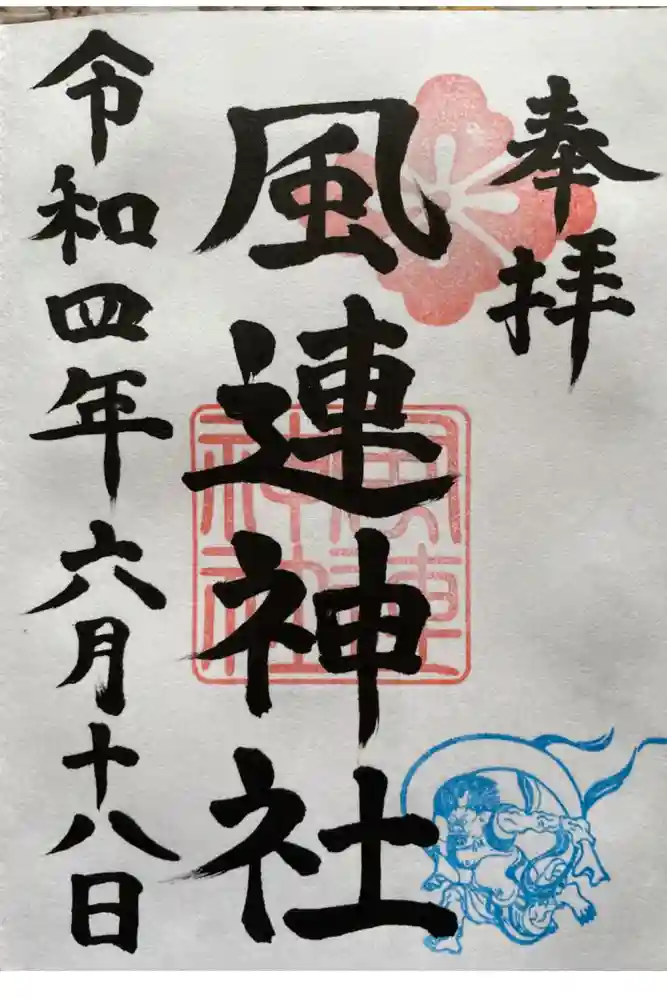 奉拝
風連神社
風連
神社
令和四年六月十八日